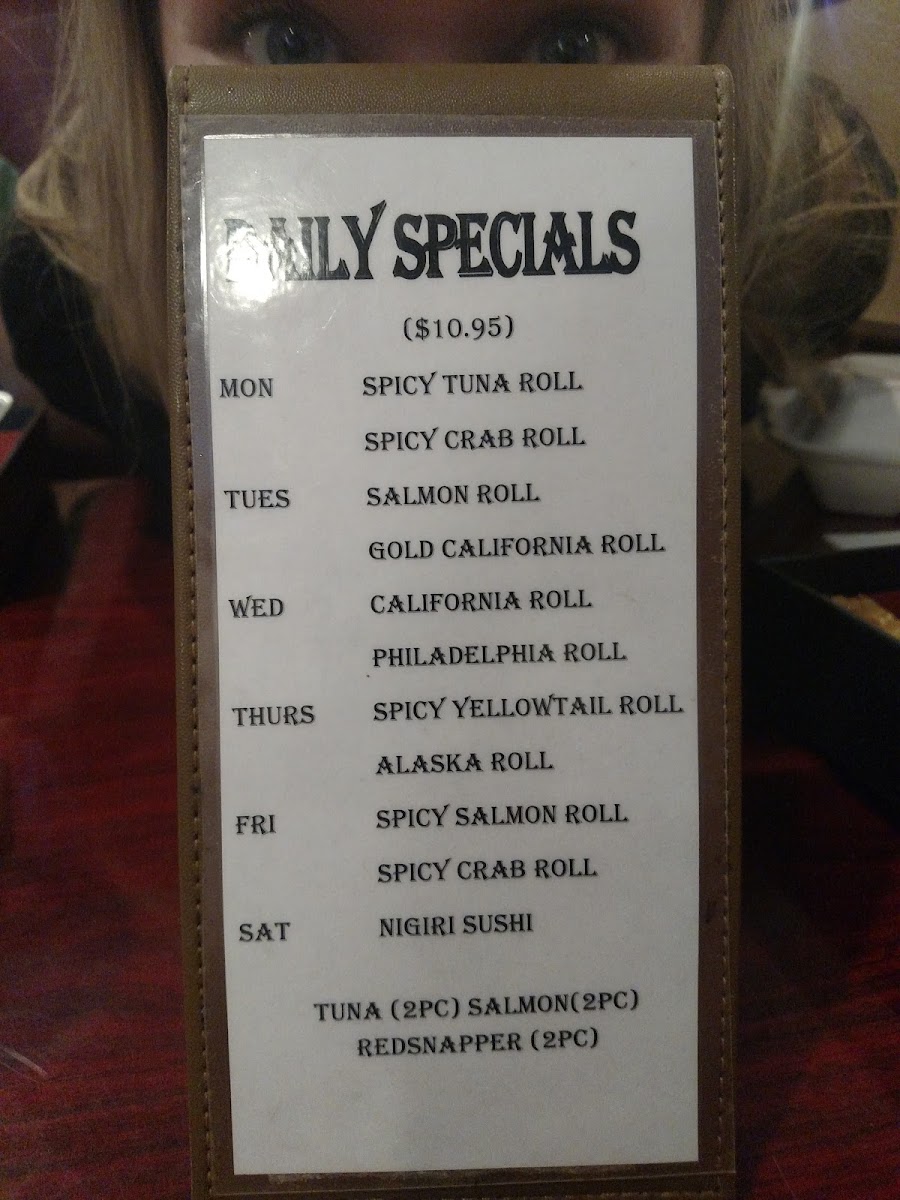 DAILY SPECIALS
($10.95)
MON SPICY TUNA ROLL
SPICY CRAB ROLL
TUES SALMON ROLL
GOLD CALIFORNIA ROLL
WED CALIFORNIA ROLL
PHILADELPHIA ROLL
THURS SPICY YELLOWTAIL ROLL
ALASKA ROLL
FRI SPICY SALMON ROLL
SPICY CRAB ROLL
SAT NIGIRI SUSHI
TUNA (2PC) SALMON(2PC)
REDSNAPPER (2PC)